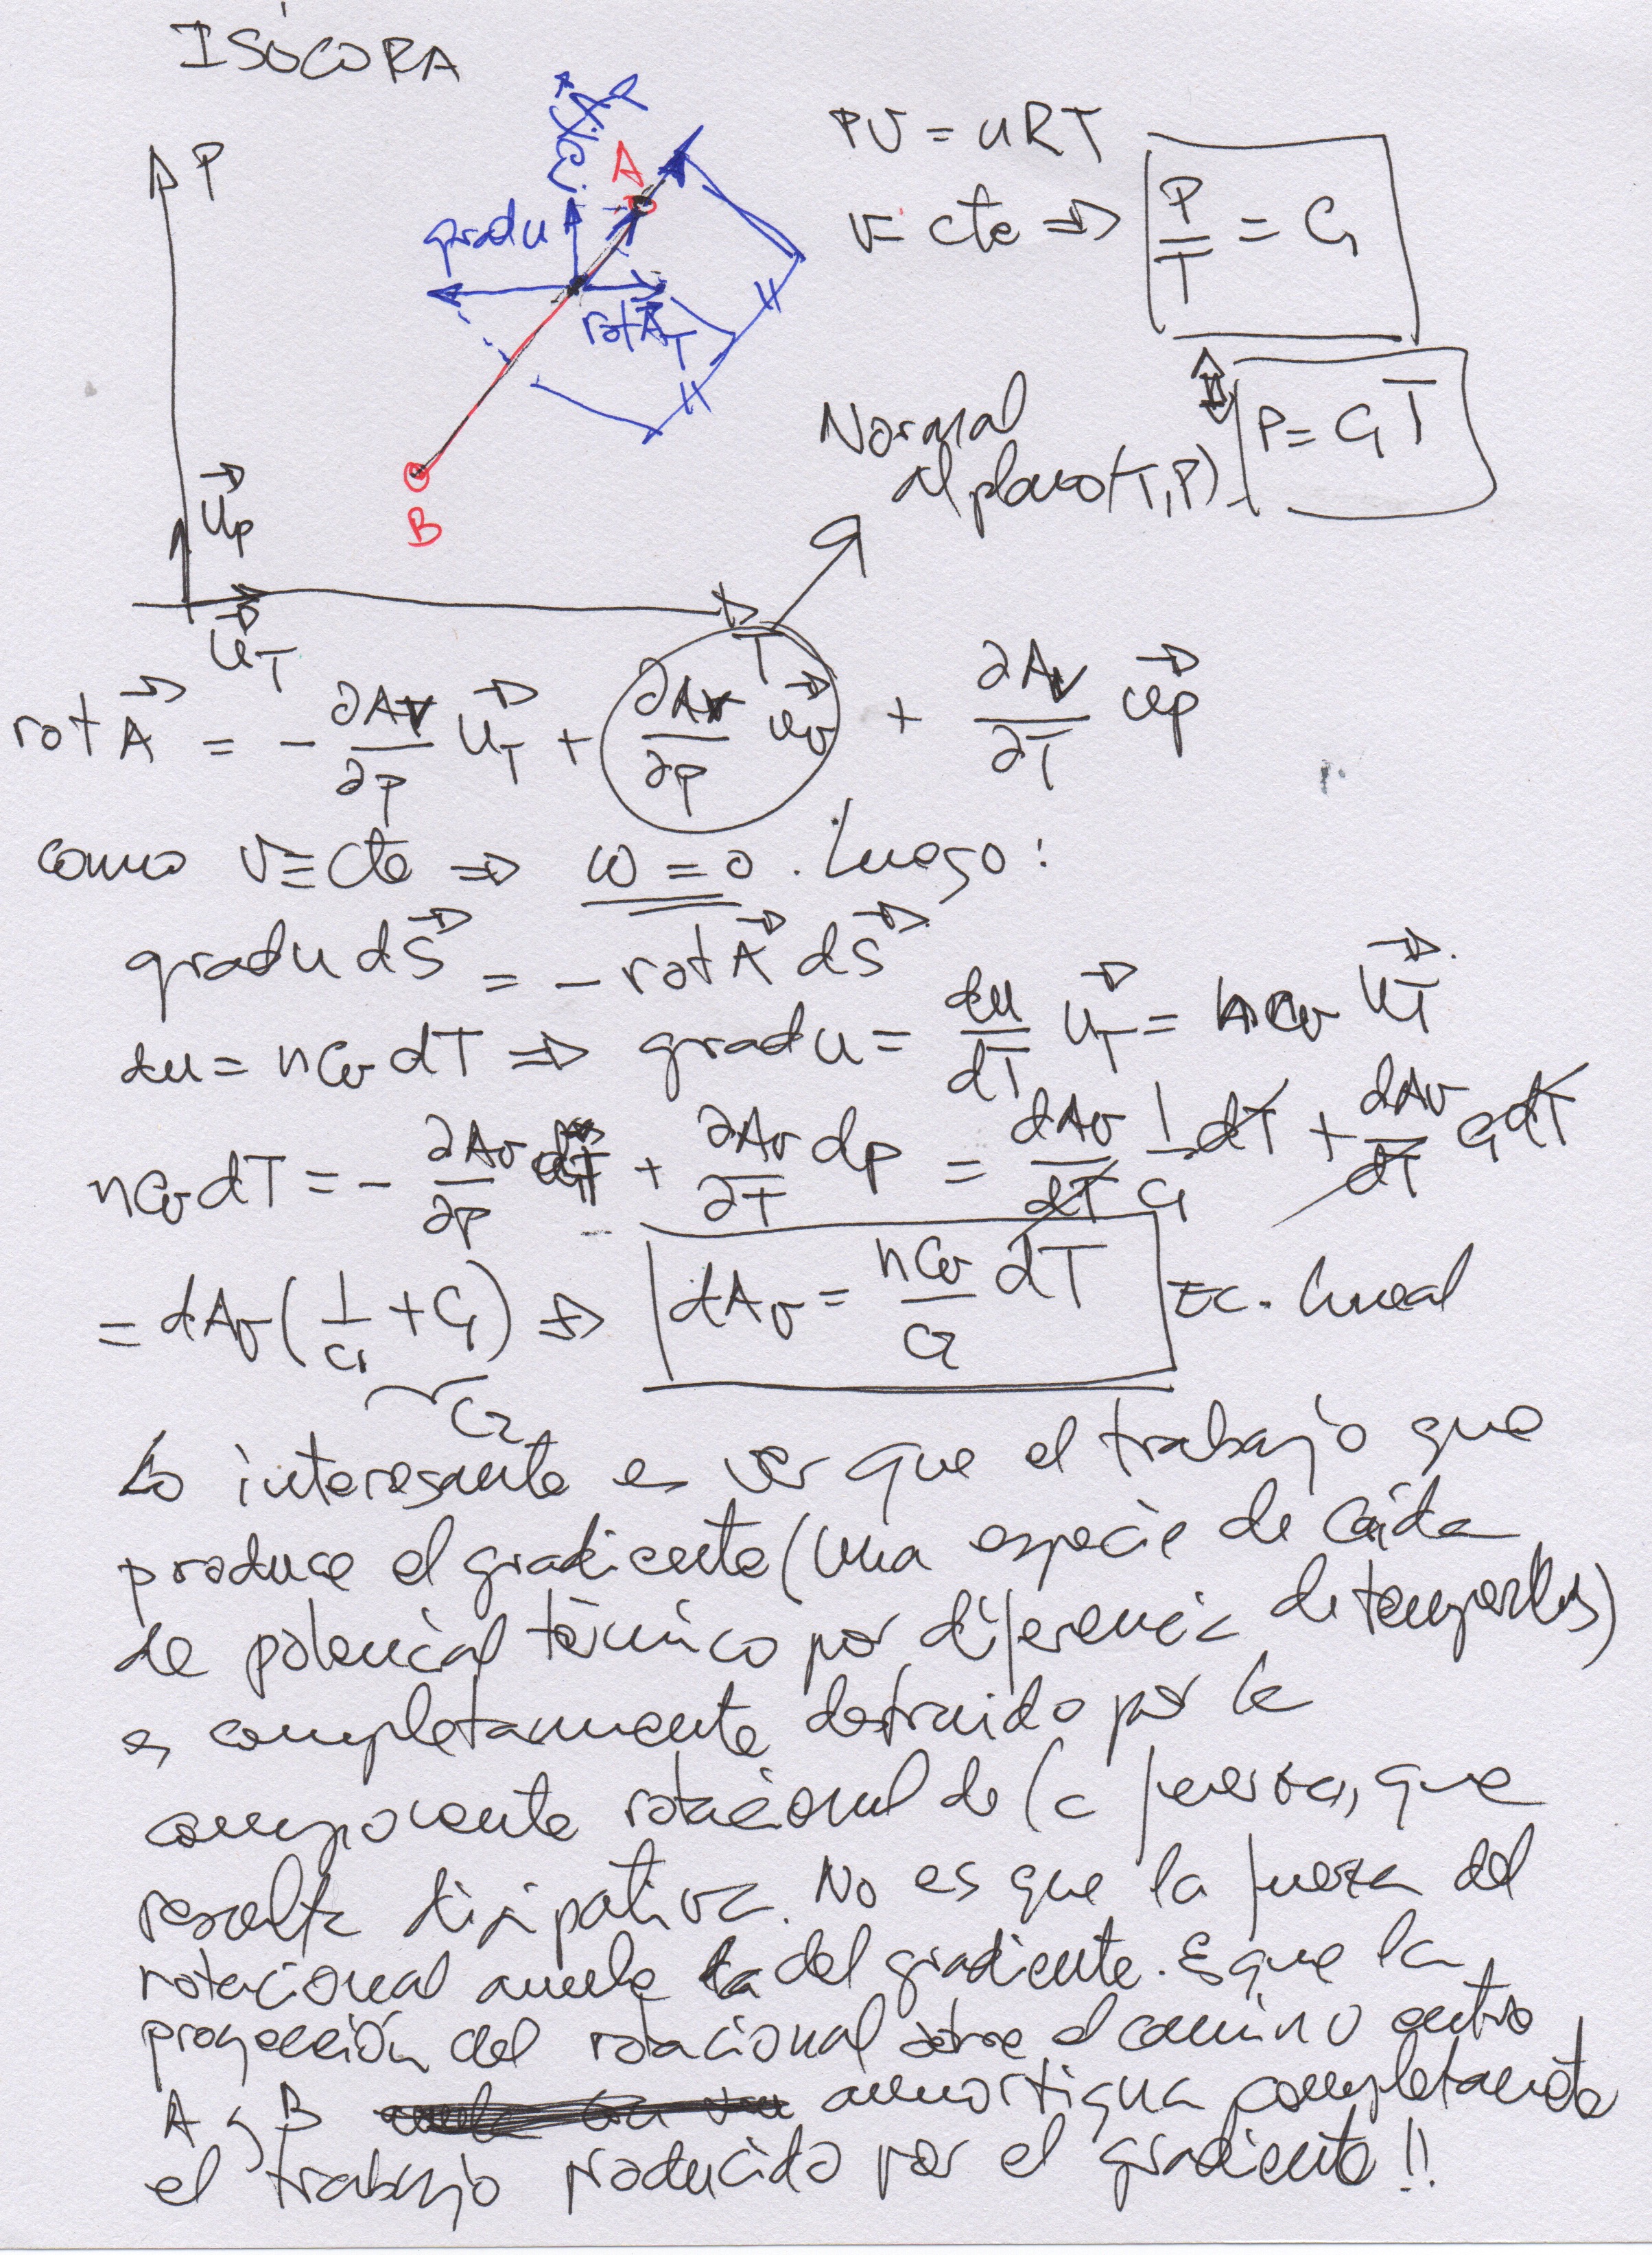 ISÓCORA
P
grad u
A
rot A⃗_T
B
u⃗_p
u⃗_T
T
PV = nRT
V = cte ⇒ P/T = C₁
⇕
P = C₁T
Normal
al plano (T,P)
rot A⃗ = - ∂Av/∂p u⃗_T + ∂Av/∂p u⃗_v + ∂Av/∂T u⃗_p
como V ≡ cte ⇒ ω = 0. Luego:
grad u dS⃗ = - rot A⃗ dS⃗
du = nCv dT ⇒ grad u = du/dT u⃗_T = nCv u⃗_T
nCv dT = - ∂Av/∂p dT + ∂Av/∂T dp = dAv/dT 1/C₁ dT + dAv/dT C₁ dT
= dAv (1/C₁ + C₁) ⇒ dAv = nCv/C₂ dT Ec. lineal
C₂
Lo interesante es ver que el trabajo que
produce el gradiente (una especie de caída
de potencial térmico por diferencia de)
es completamente destruido por la
componente rotacional de la fuerza, que
resulta disipativa. No es que la fuerza del
rotacional anule la del gradiente. Es que la
proyección del rotacional sobre el camino entre
A y B amortigua completamente
el trabajo producido por el gradiente!!